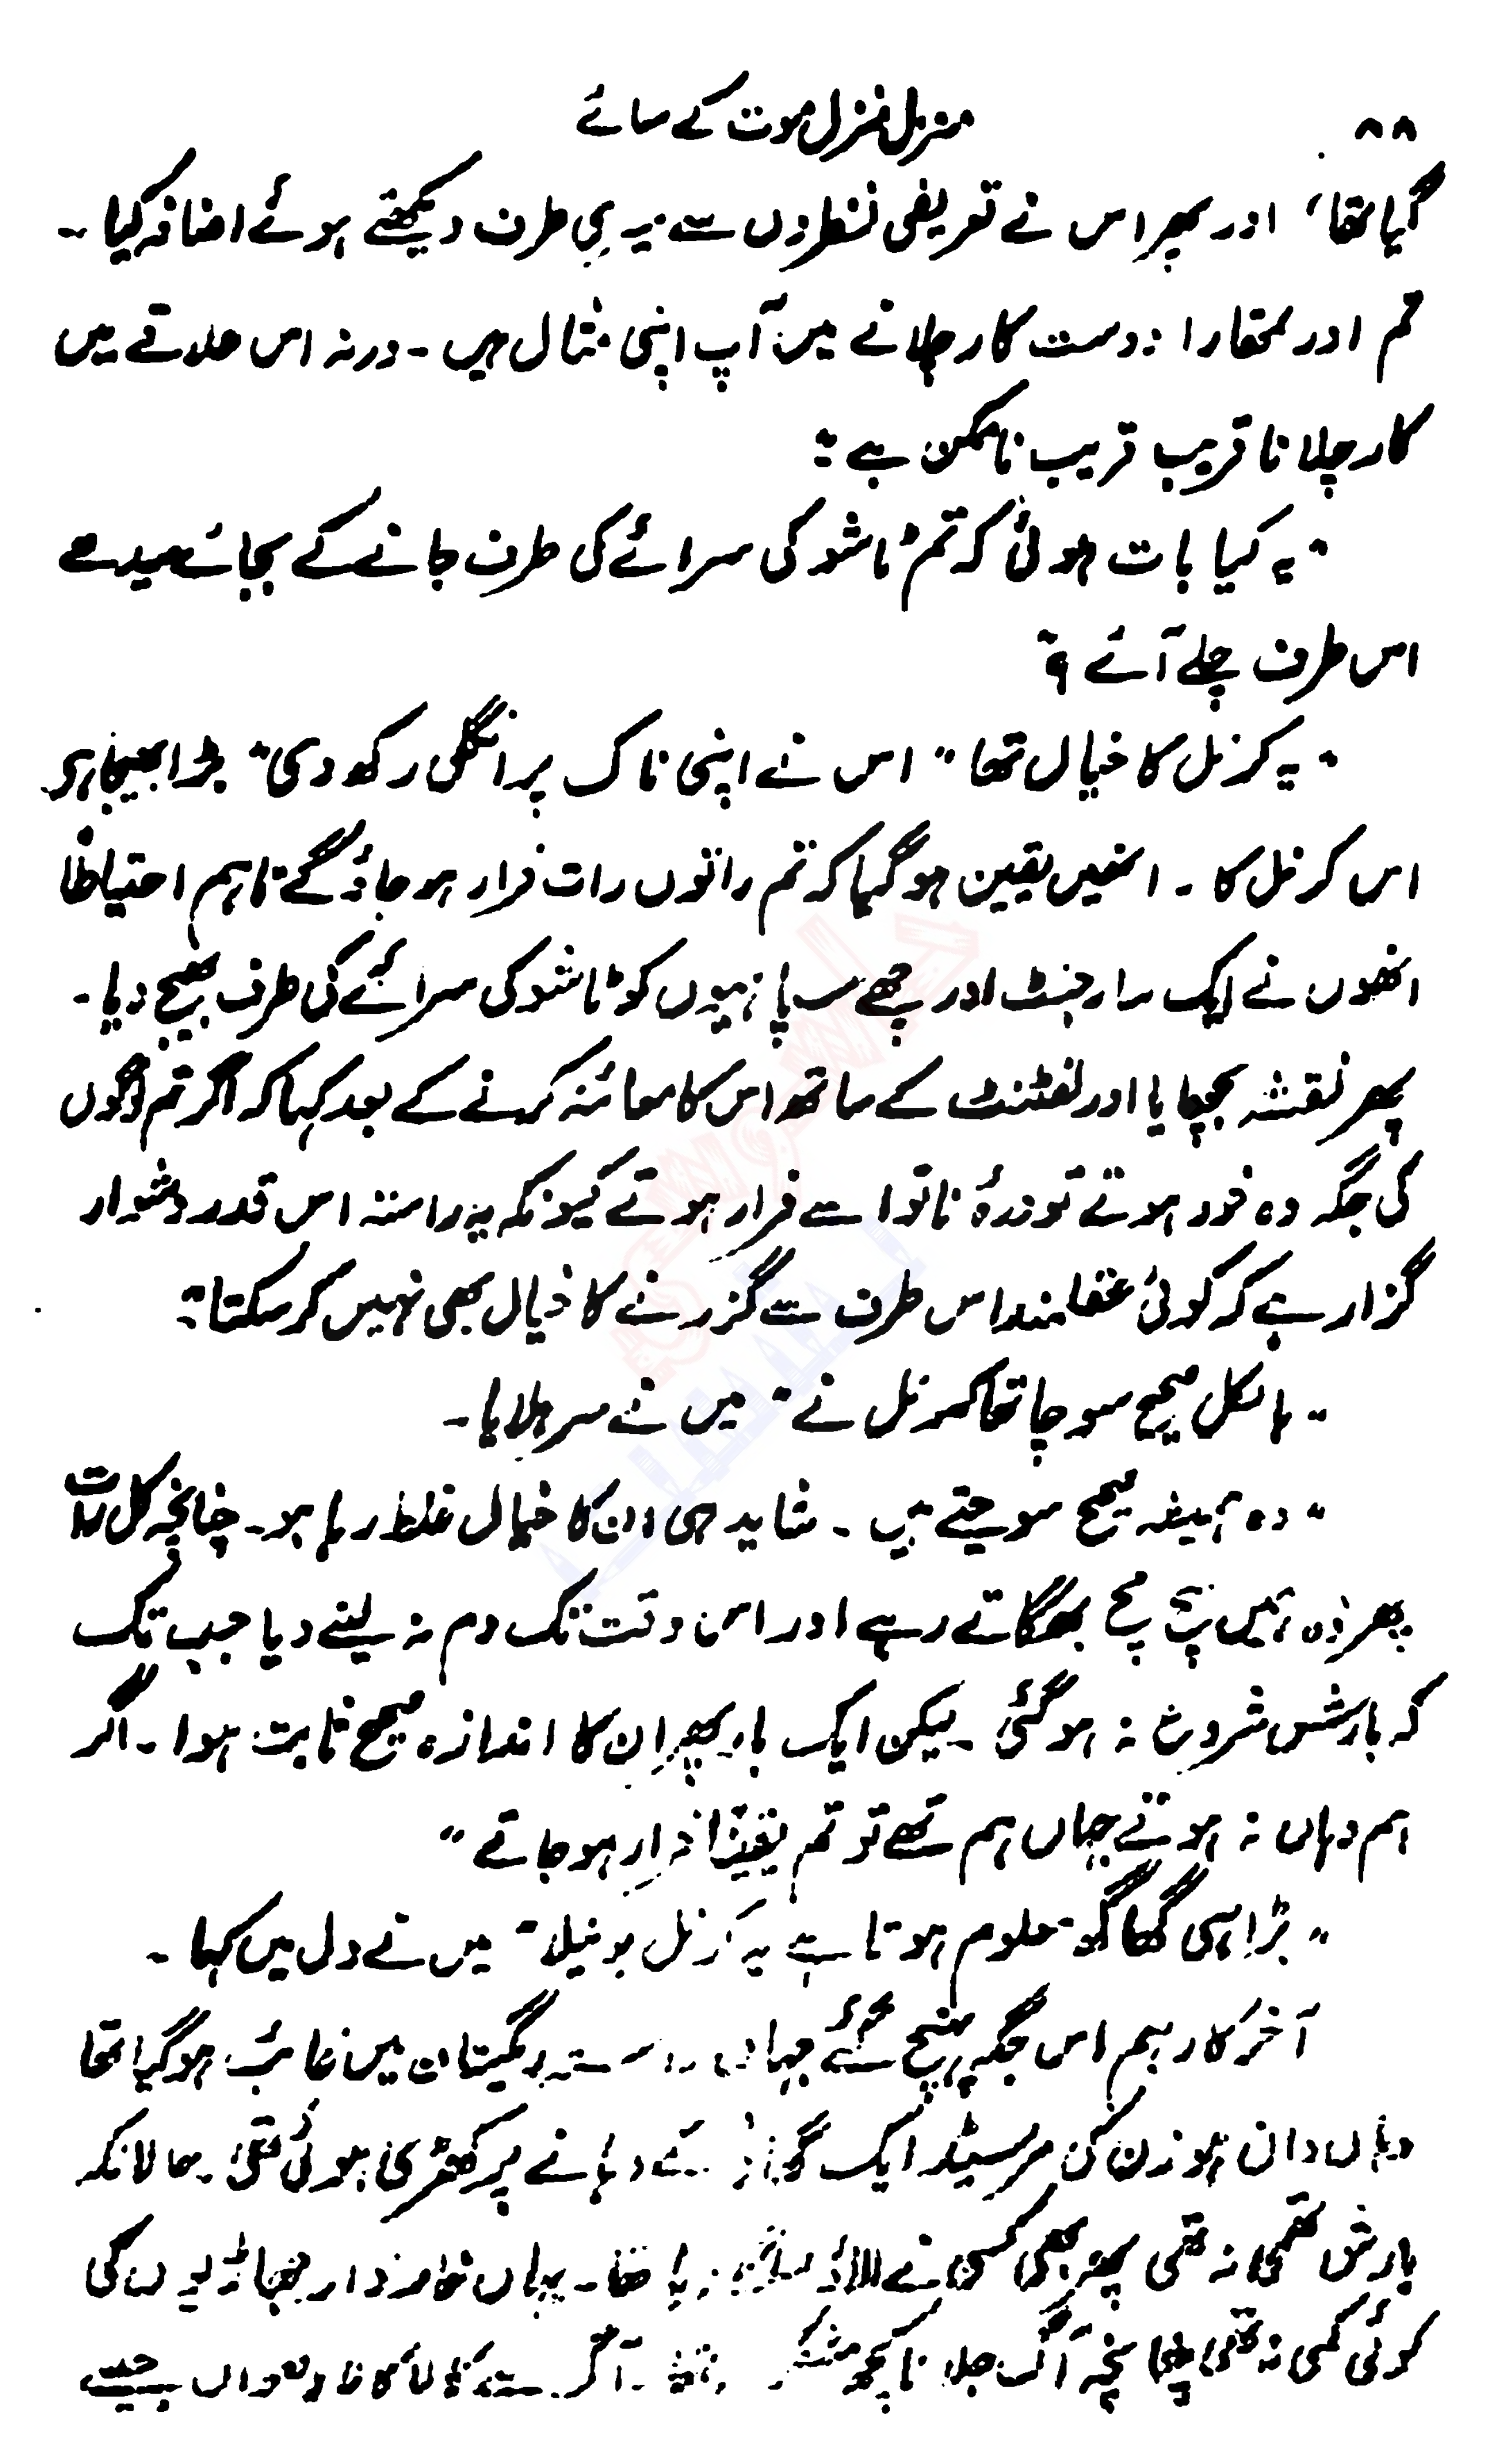 ۸۸ منزل منزل موت کے سائے
گیا تھا، اور پھر اس نے تعریفی نظروں سے میری طرف دیکھتے ہوئے اضافہ کیا ۔
تم اور تمھارا دوست کار چلانے میں آپ اپنی مثال ہیں ۔ ورنہ اس علاقے میں
کار چلانا قریب قریب ناممکن ہے "
" یہ کیا بات ہوئی کہ تم ٹاشو کی سرائے کی طرف جانے کے بجائے سیدھے
اس طرف چلے آئے ؟"
" یہ کرنل کا خیال تھا " اس نے اپنی ناک پر انگلی رکھ دی " بڑا بھیجا ہے
اس کرنل کا ۔ انھیں یقین ہو گیا کہ تم راتوں رات فرار ہو جاؤ گے تاہم احتیاطاً
انھوں نے ایک سارجنٹ اور چھے سپاہیوں کو ٹاشو کی سرائے کی طرف بھیج دیا ۔
پھر نقشہ بچھایا اور لفٹنٹ کے ساتھ اس کا معائنہ کرنے کے بعد کہا کہ اگر تم لوگوں
کی جگہ وہ خود ہوتے تو درۂ ناتوا سے فرار ہوتے کیونکہ یہ راستہ اس قدر دشوار
گزار ہے کہ کوئی عقلمند اس طرف سے گزرنے کا خیال بھی نہیں کر سکتا "
" بالکل صحیح سوچا تھا کرنل نے " میں نے سر ہلایا ۔
" وہ ہمیشہ صحیح سوچتے ہیں ۔ شاید ہی ان کا خیال غلط رہا ہو ۔ چنانچہ کل رات
پھر وہ ہمیں پیچ پیچ بھگاتے رہے اور اس وقت تک دم نہ لینے دیا جب تک
کہ بارش شروع نہ ہو گئی ۔ لیکن ایک بار پھر ان کا اندازہ صحیح ثابت ہوا ۔ اگر
ہم وہاں نہ ہوتے جہاں ہم تھے تو تم یقیناً فرار ہو جاتے "
" بڑا ہی گھاگ معلوم ہوتا ہے یہ کرنل بونیلا " میں نے دل میں کہا ۔
آخر کار ہم اس جگہ پہنچ گئے جہاں راستہ ریگستان میں غائب ہو گیا تھا
وہاں وان ہوزن کی مرسیڈیز ایک کے دہانے پر کھڑی ہوئی تھی ۔ حالانکہ
بارش تھمی نہ تھی پھر بھی کسی نے الاؤ تھا ۔ یہاں خاردار جھاڑیوں کی
کوئی کمی نہ تھی چنانچہ آگ جلانا کچھ مشکل نہ تھا ۔ آگ سے گاڑھا دھواں جیسے